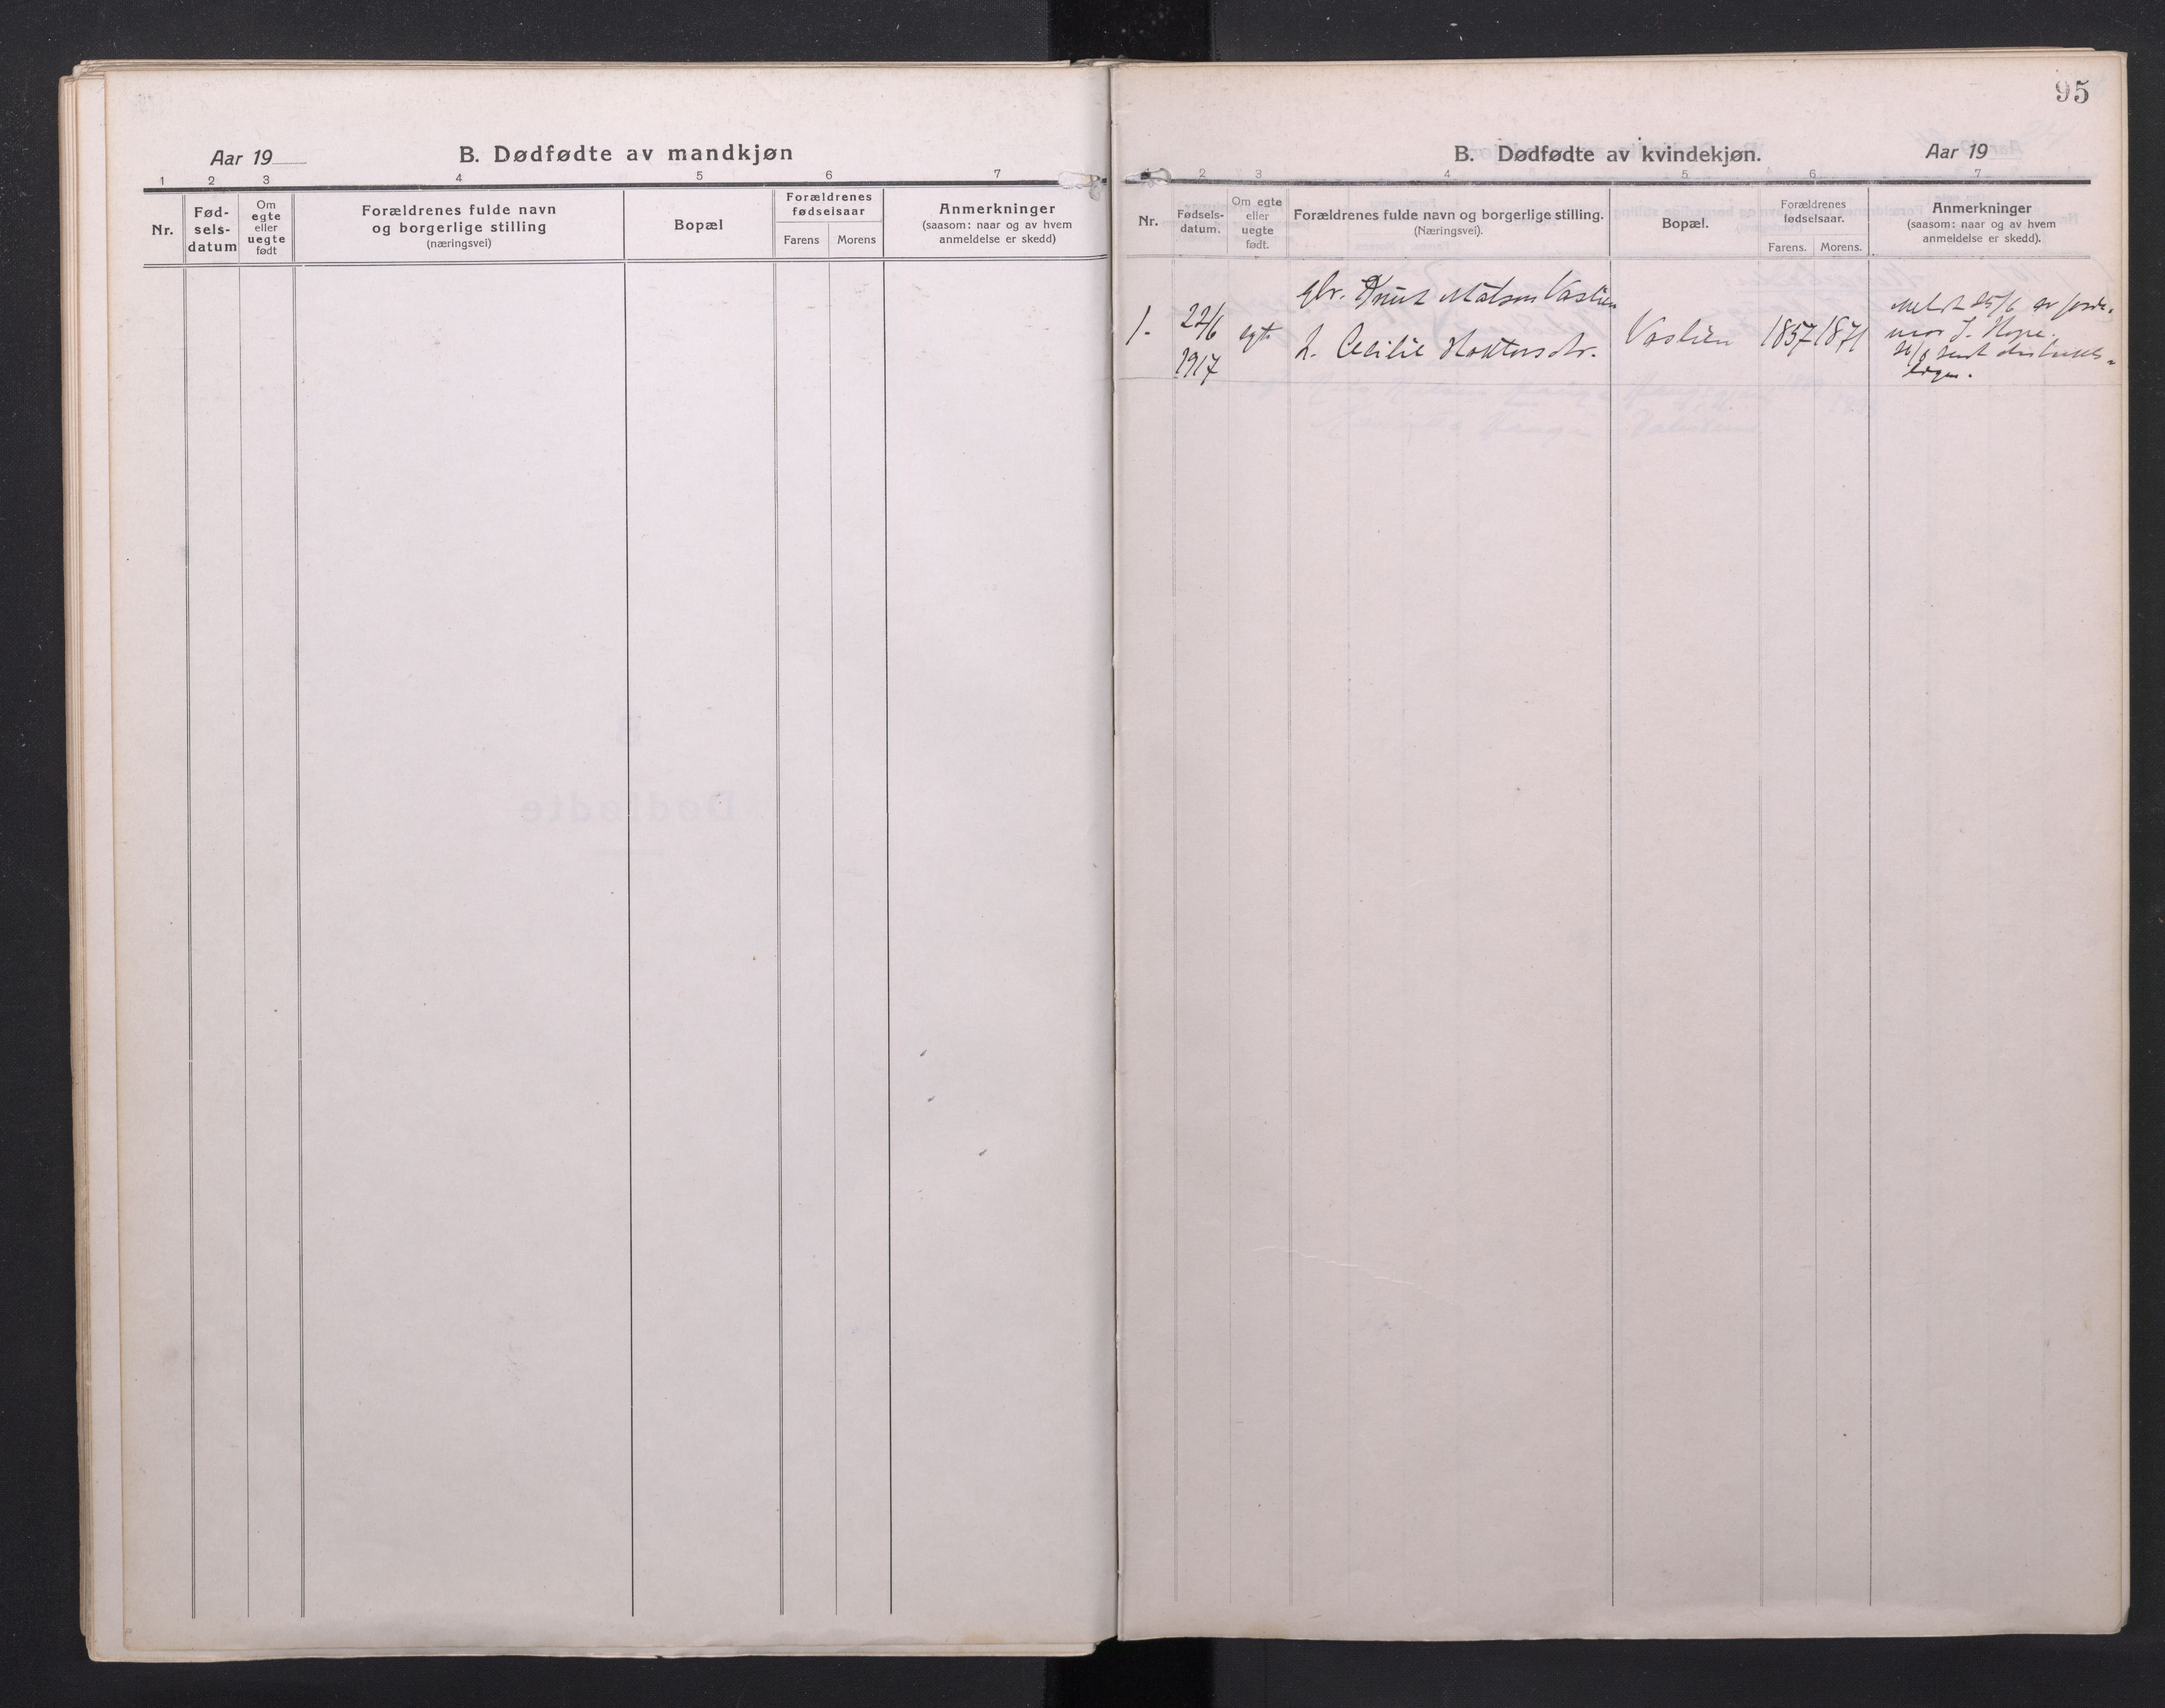 95
Aar 19
B. Dødfødte av mandkjøn
1 2 3 4 5 6 7
Nr.
Fød-
sels-
datum
Om
egte
eller
uegte
født
Forældrenes fulde navn
og borgerlige stilling
(næringsvei)
Bopæl
Forældrenes
fødselsaar
Farens Morens
Anmerkninger
(saasom: naar og av hvem
anmeldelse er skedd)
B. Dødfødte av kvindekjøn.
Aar 19
2 3 4 5 6 7
Nr.
Fødsels-
datum.
Om egte
eller
uegte
født.
Forældrenes fulde navn og borgerlige stilling.
(Næringsvei).
Bopæl.
Forældrenes
fødselsaar.
Farens. Morens.
Anmerkninger
(saasom: naar og av hvem
anmeldelse er skedd).
1.
22/6
1917
egte
gbr. Knut Matson
h. Cecilie
1857
1871
Meldt 25/6 av jorde-
mor J. Hope.
sendt distrikts-
lægen.
Dødfødte